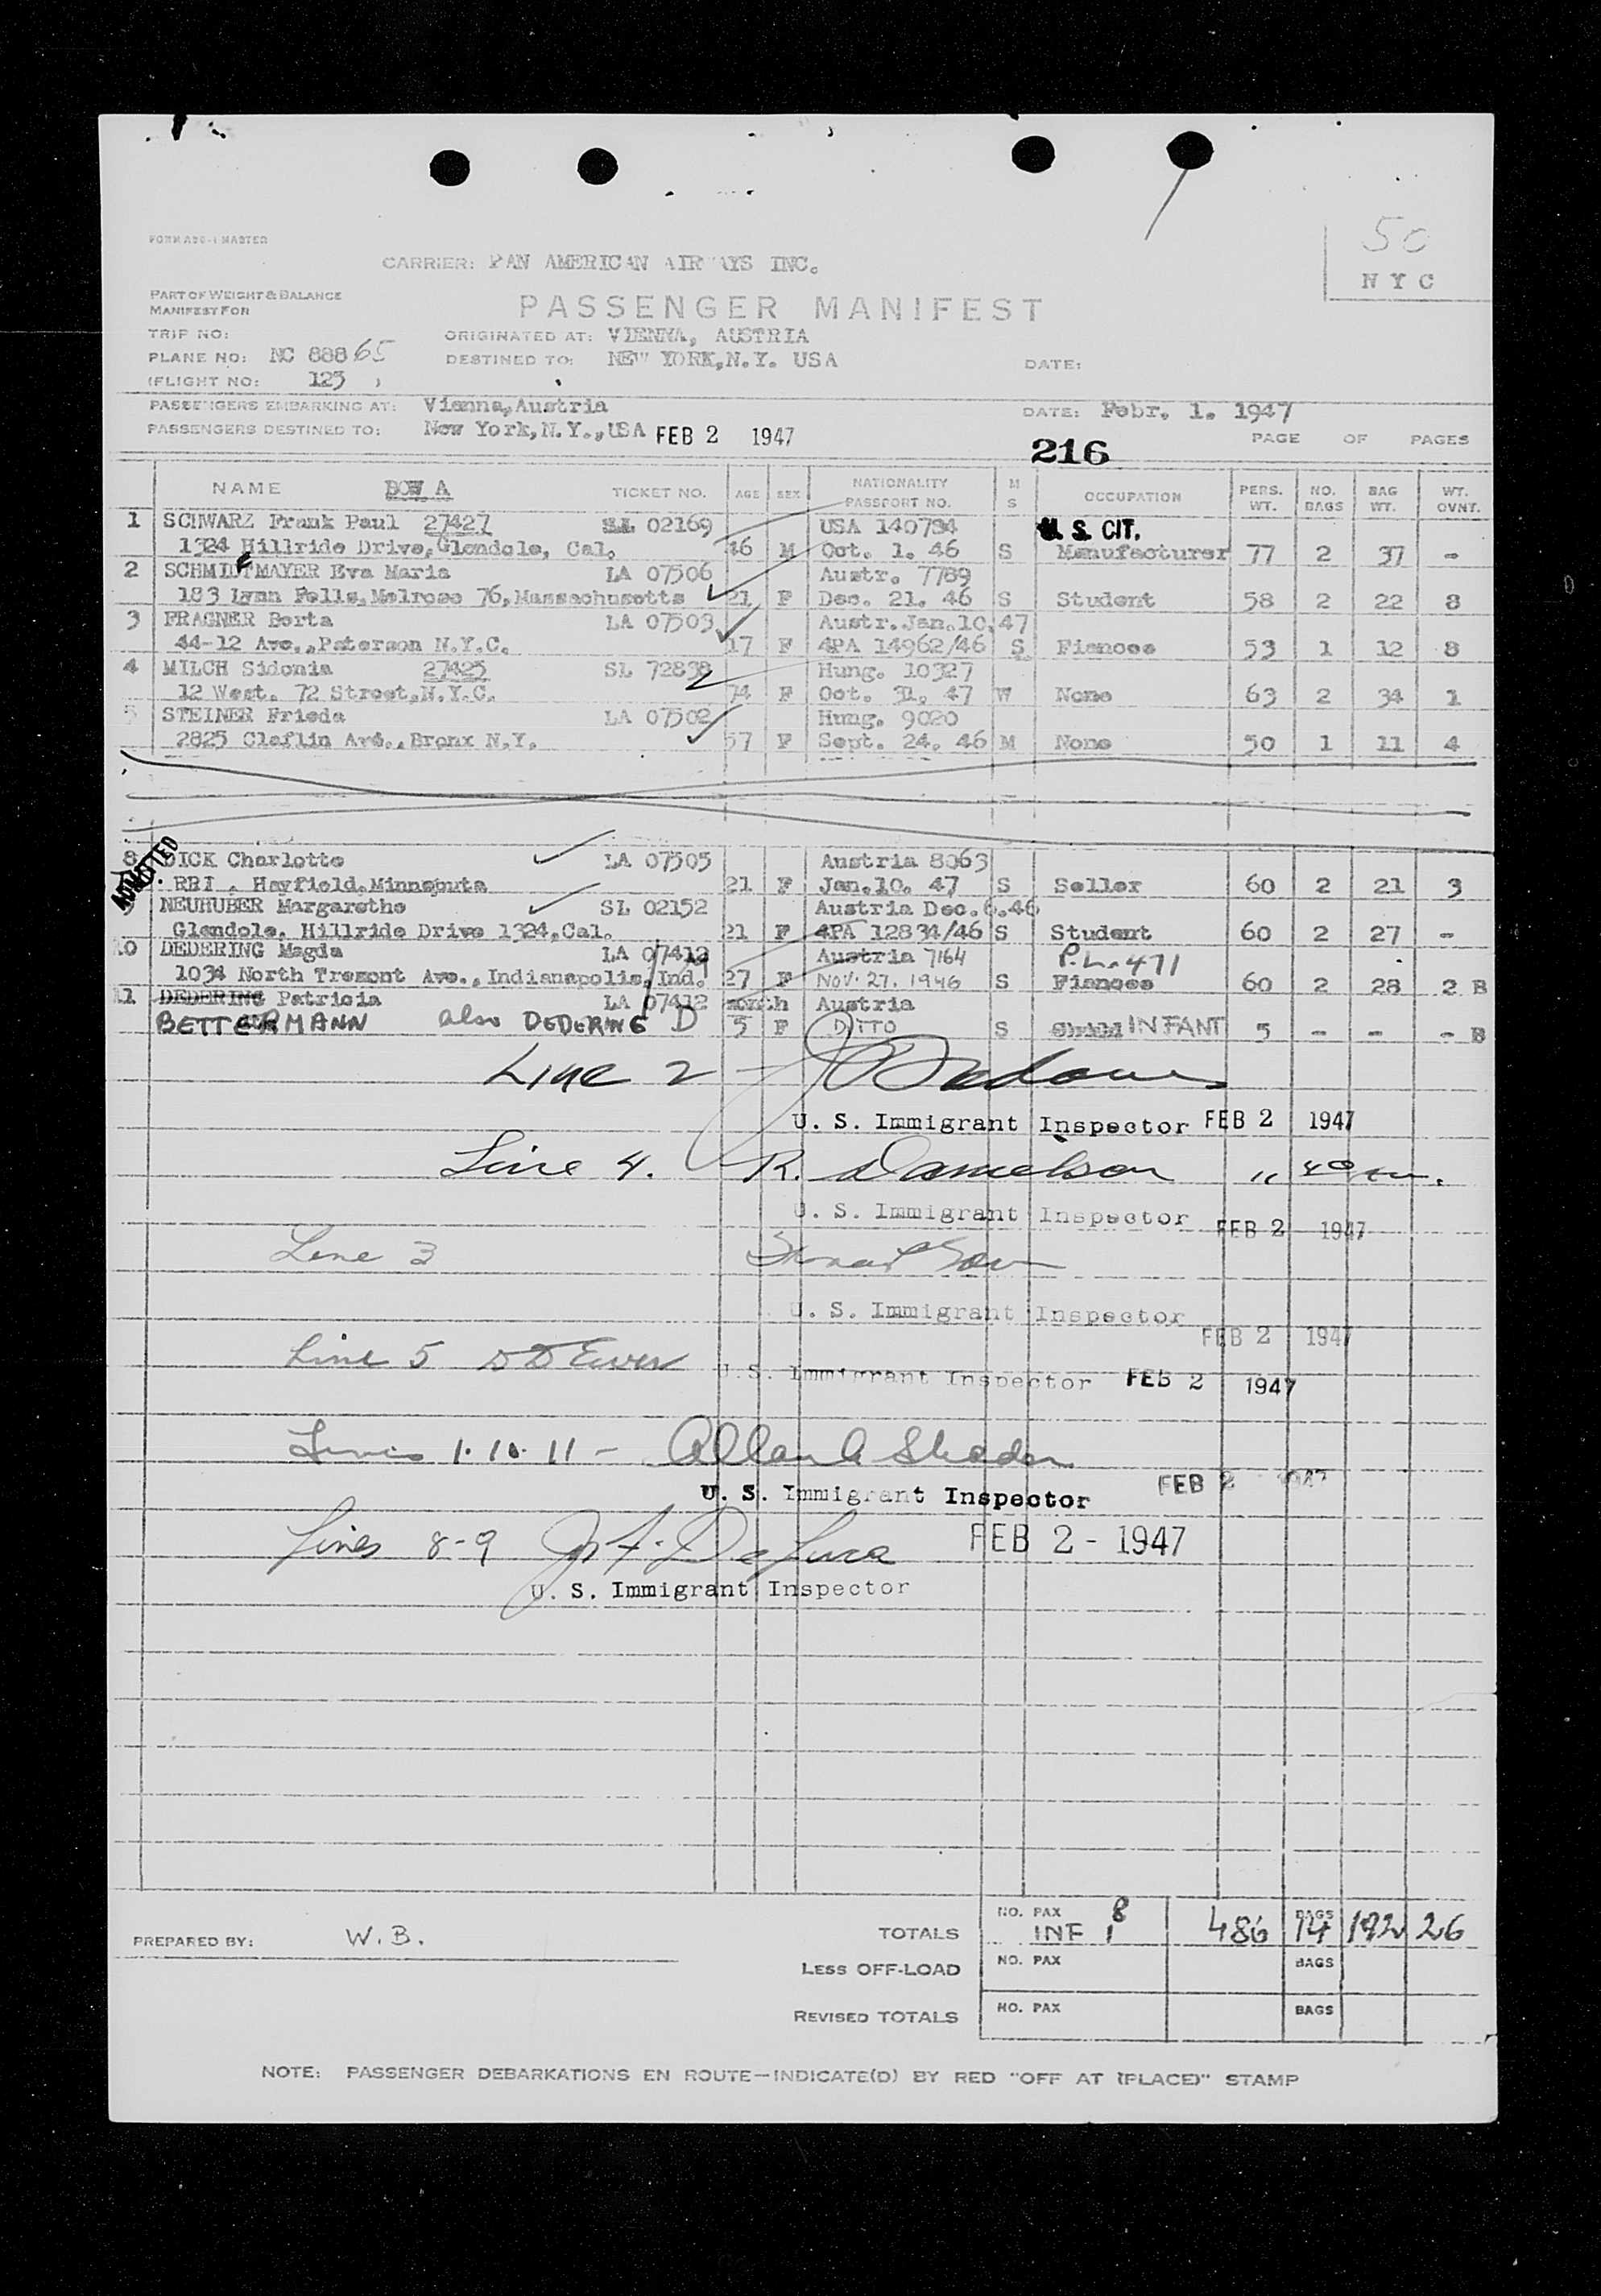 50
NYC
FORM ABC-1 MASTER
CARRIER: PAN AMERICAN AIRWAYS INC.
PART OF WEIGHT & BALANCE
MANIFEST FOR
PASSENGER MANIFEST
TRIP NO:
ORIGINATED AT: VIENNA, AUSTRIA
PLANE NO: NC 88865
DESTINED TO: NEW YORK,N.Y. USA
DATE:
(FLIGHT NO: 123 )
PASSENGERS EMBARKING AT: Vienna,Austria
DATE: Febr. 1. 1947
PASSENGERS DESTINED TO: New York,N.Y.,USA FEB 2 1947
PAGE OF PAGES
216
NAME BOW A TICKET NO. AGE SEX NATIONALITY PASSPORT NO. M S OCCUPATION PERS. WT. NO. BAGS BAG WT. WT. OVNT.
1 SCHWARZ Frank Paul 27427 SL 02169 USA 140784 U.S. CIT.
1324 Hillride Drive,Glendole, Cal. 46 M Oct. 1. 46 S Manufacturer 77 2 37 -
2 SCHMIDTMAYER Eva Maria LA 07506 Austr. 7789
183 Lynn Fells,Melrose 76,Massachusetts 21 F Dec. 21. 46 S Student 58 2 22 8
3 FRAGNER Berta LA 07503 Austr.Jan.10.47
44-12 Ave.,Paterson N.Y.C. 17 F 4PA 14962/46 S Fiancee 53 1 12 8
4 MILCH Sidonia 27425 SL 72838 Hung. 10327
12 West. 72 Street,N.Y.C. 74 F Oct. 31. 47 W None 63 2 34 1
5 STEINER Frieda LA 07502 Hung. 9020
2825 Claflin Ave.,Bronx N.Y. 57 F Sept. 24. 46 M None 50 1 11 4
ADMITTED
8 DICK Charlotte LA 07505 Austria 8063
RBI . Hayfield,Minnsputa 21 F Jan.10. 47 S Seller 60 2 21 3
9 NEUHUBER Margarethe SL 02152 Austria Dec.6.46
Glendole, Hillride Drive 1324,Cal. 21 F 4PA 12834/46 S Student 60 2 27 -
10 DEDERING Magda LA 07412 Austria 7164 P.L.471
1034 North Tremont Ave.,Indianapolis,Ind. 27 F NOV. 27. 1946 S Fiancee 60 2 28 2 B
11 DEDERING Patricia LA 07412 month Austria
BETTERMANN also DEDERING D 5 F DITTO S Child INFANT 5 - - - B
Line 2
U. S. Immigrant Inspector FEB 2 1947
Line 4. R. Danielson
U. S. Immigrant Inspector FEB 2 1947
Line 3
U. S. Immigrant Inspector
FEB 2 1947
Line 5
U.S. Immigrant Inspector FEB 2 1947
Lines 1.10.11 - Allan
U. S. Immigrant Inspector FEB 2 1947
Lines 8-9 FEB 2 - 1947
U. S. Immigrant Inspector
PREPARED BY: W.B.
TOTALS NO. PAX 8 INF 1 486 BAGS 14 192 26
LESS OFF-LOAD NO. PAX BAGS
REVISED TOTALS NO. PAX BAGS
NOTE: PASSENGER DEBARKATIONS EN ROUTE—INDICATE(D) BY RED "OFF AT (PLACE)" STAMP